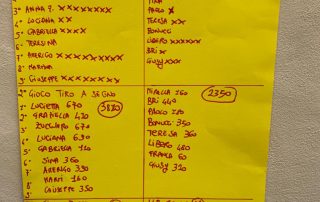 3° ANNA P. XXXXXXXXX
4° LUCIANA XX
5° GABRIELLA XXXX
6° TERESINA
7° AMERIGO XXXXXXXXXX
8° MARISA
9° GIUSEPPE XXXXXXXXX
TINA
PAOLO X
TERESA XX
BONUCCI
LIBERO XXXXXXX
BRI X
GIUSY XXX
2° GIOCO TIRO A SEGNO
1° LUCIETTA 670
3820
2° GRAZIELLA 420
3° ZUCCHERO 670
4° LUCIANA 630
5° GABRIELLA 110
6° SINA 360
390
MARII 160
8° GIUSEPPE 350
MIRELLA 260
2350
BRI 440
PAOLO 120
BONUCCI 350
TERESA 360
LIBERO 480
FRANCA 60
GIUSY 310